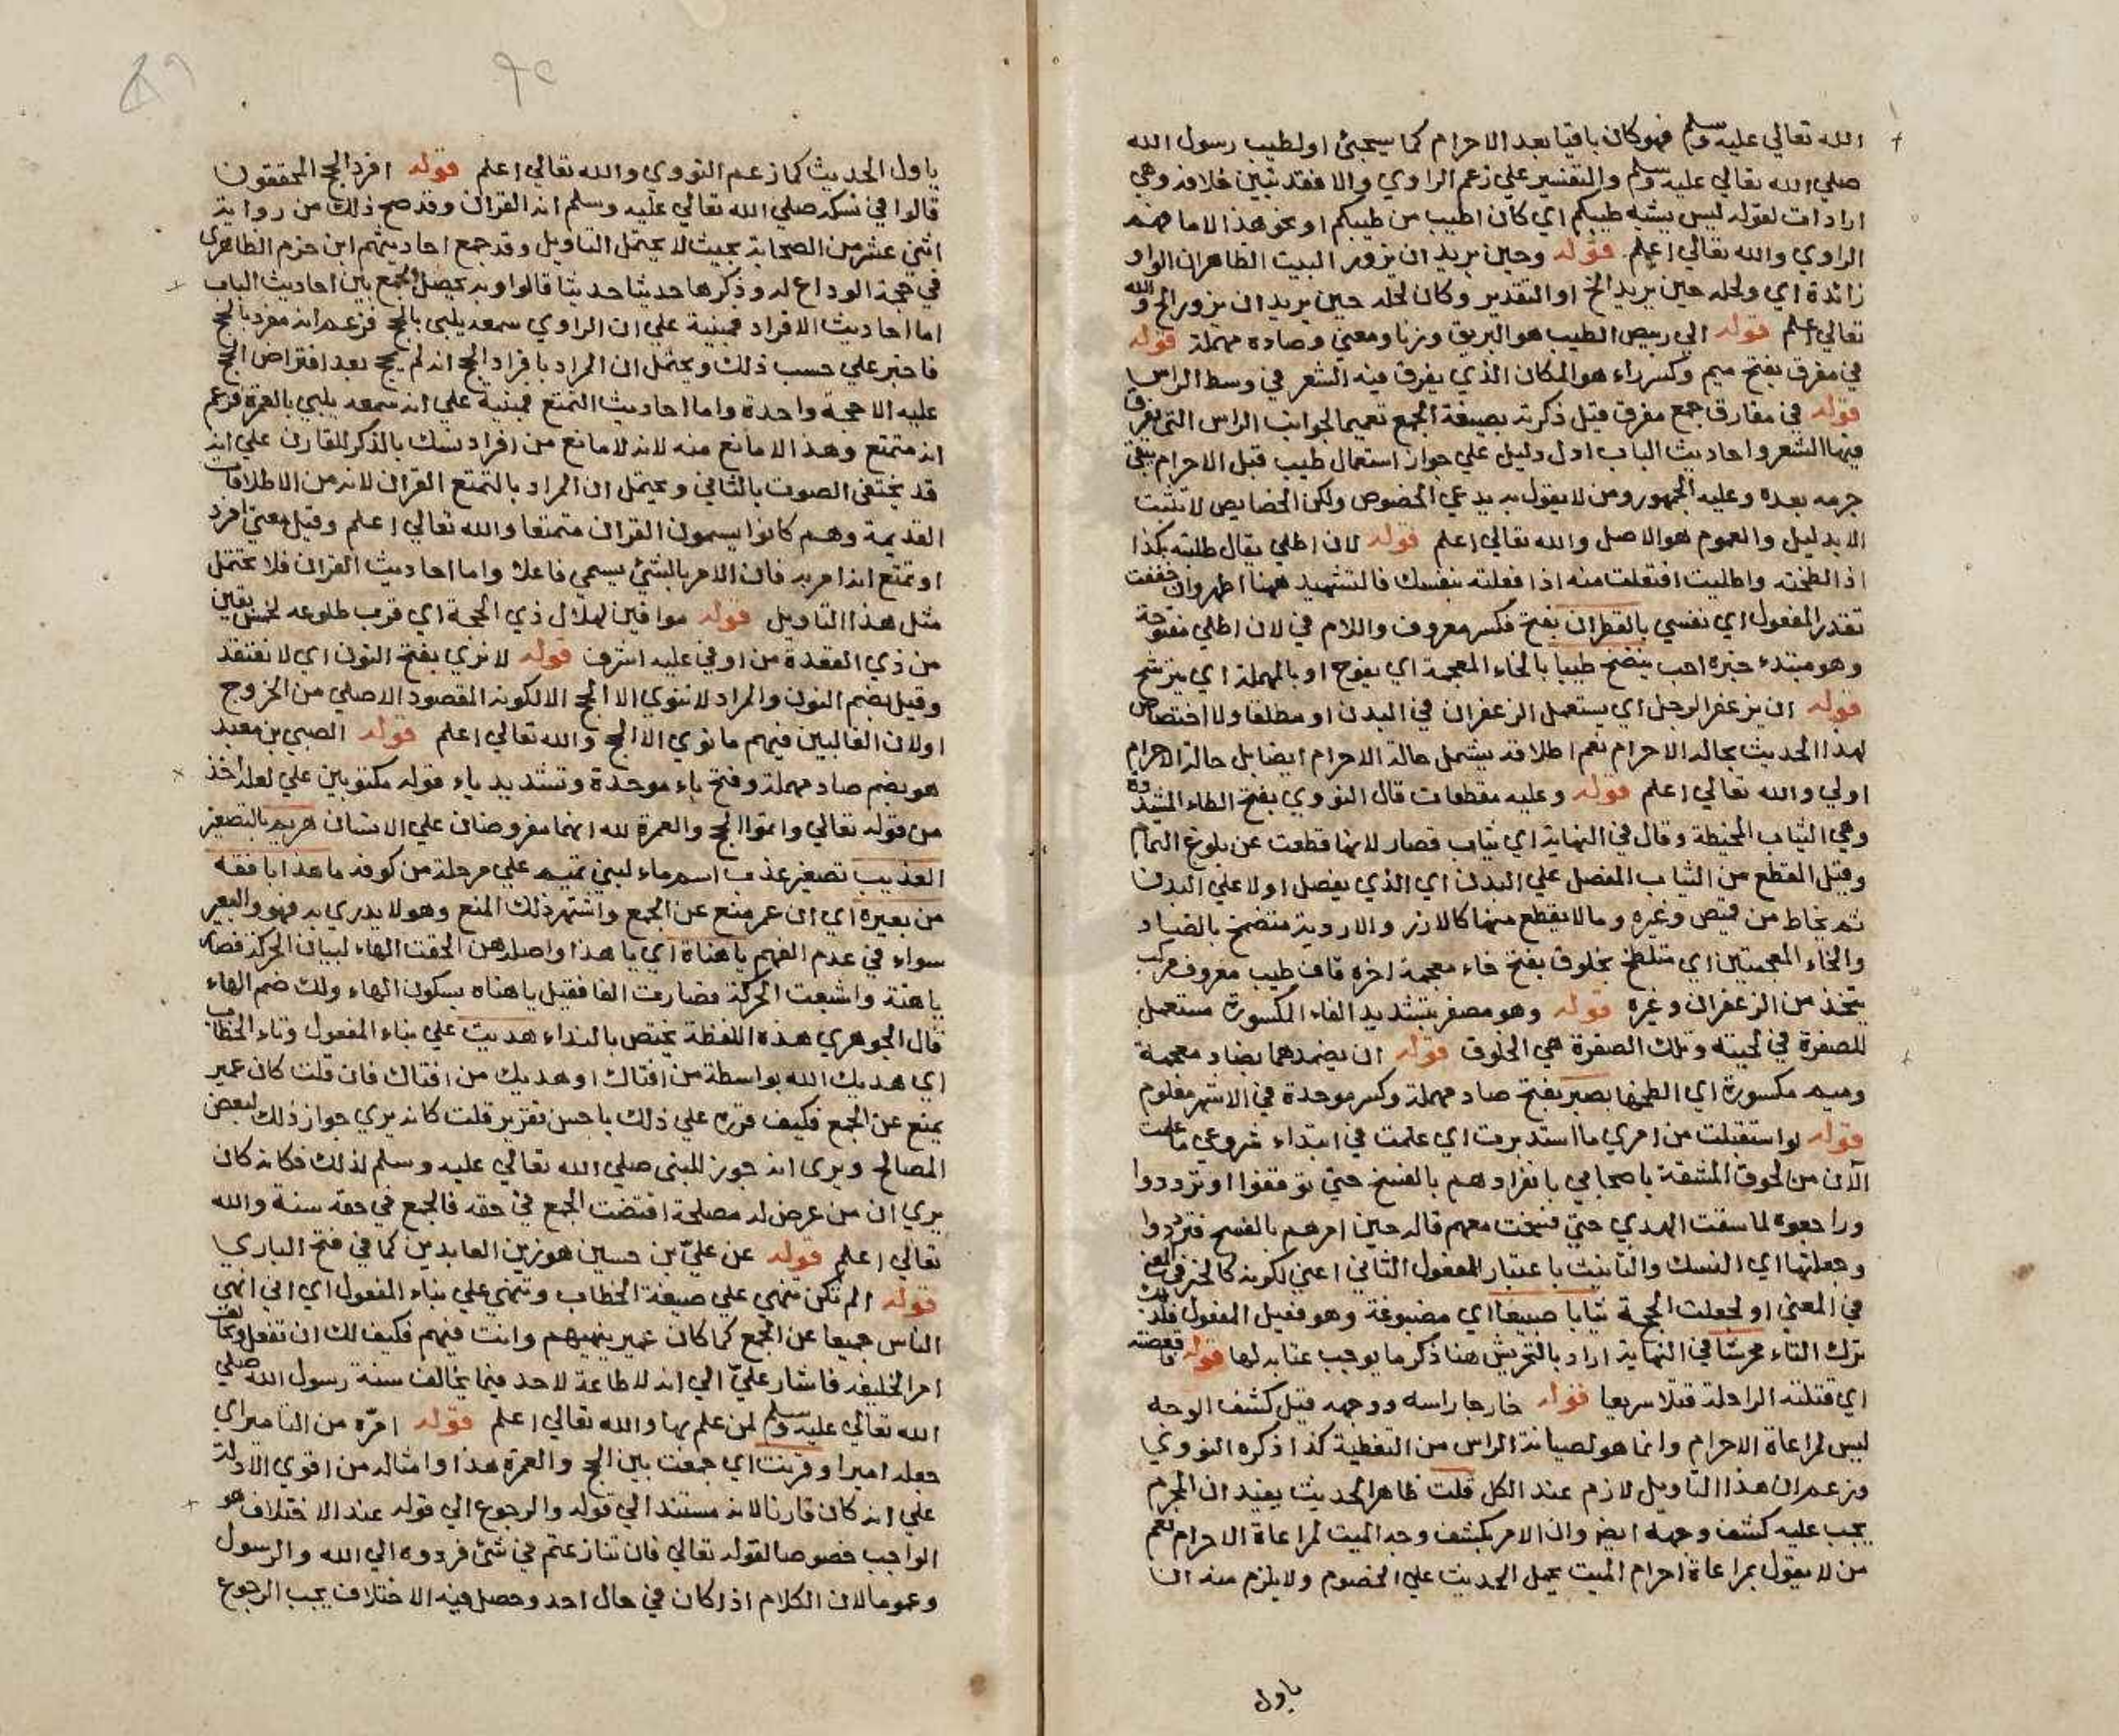 الله تعالي عليه وسلم فهو كان باقيا بعد الاحرام كما سيجئ او لطيب رسول الله
صلي الله تعالي عليه وسلم والتفسير علي زعم الراوي والا فقد تبين خلافه وهي
ارادات لقوله ليس يشبه طيبكم اي كان اطيب من طيبكم او نحو هذا الا ما فهمه
الراوي والله تعالي اعلم قوله وحين يريد ان يزور البيت الظاهر ان الواو
زائدة اي ولحله حين يريد الخ او التقدير وكان لحله حين يريد ان يزور الخ والله
تعالي اعلم قوله الي وبيص الطيب هو البريق وزنا ومعني وصاده مهملة قوله
في مفرق بفتح ميم وكسر راء هو المكان الذي يفرق فيه الشعر في وسط الراس
قوله في مفارق جمع مفرق قيل ذكرته بصيغة الجمع تعميما لجوانب الراس التي يفرق
فيها الشعر واحاديث الباب ادل دليل علي جواز استعمال طيب قبل الاحرام يبقي
جرمه بعده وعليه الجمهور ومن لا يقول به يدعي الخصوص ولكن الخصايص لا تثبت
الا بدليل والعموم هو الاصل والله تعالي اعلم قوله لان اطلي يقال طلبته بكذا
اذا لطخته واطليت افتعلت منه اذا فعلته بنفسك فالتشهيد ههنا اظهر وان خففت
تقدر المفعول اي نفسي بالقطران بفتح فكسر معروف واللام في لان اطلي مفتوحة
وهو مبتدء خبره احب ينضخ طيبا بالخاء المعجمة اي يفوح او بالمهملة اي يترشح
قوله ان يزعفر الرجل اي يستعمل الزعفران في البدن او مطلقا ولا اختصاص
لهذا الحديث بحالة الاحرام نعم اطلاقه يشتمل حالة الاحرام ايضا بل حالة الاحرام
اولي والله تعالي اعلم قوله وعليه مقطعات قال النووي بفتح الطاء المشددة
وهي الثياب المخيطة وقال في النهاية اي ثياب قصار لانها قطعت عن بلوغ التمام
وقيل المقطع من الثياب المفصل علي البدن اي الذي يفصل اولا علي البدن
ثم يخاط من قميص وغيره وما لا يقطع منها كالازر والاردية متضمخ بالضاد
والخاء المعجمتين اي متلطخ بخلوق بفتح خاء معجمة اخره قاف طيب معروف مركب
يتخذ من الزعفران وغيره قوله وهو مصفر بتشديد الفاء المكسورة مستعمل
للصفرة في لحيته وتلك الصفرة هي الخلوق قوله ان يضمدهما بضاد معجمة
وميم مكسورة اي الطخها بصبر بفتح صاد مهملة وكسر موحدة في الاشهر معلوم
قوله لو استقبلت من امري ما استدبرت اي علمت في ابتداء شروعي ما علمت
الآن من لحوق المشقة باصحابي بانفرادهم بالفسخ حتي توقفوا وترددوا
وراجعوه لما سقت الهدي حتي فسخت معهم قاله حين امرهم بالفسخ فترددوا
وجعلتها اي النسك والتانيث باعتبار المفعول الثاني اعني لكونه كالخبر في
في المعني او لجعلت الحجة ثيابا صبيغا اي مصبوغة وهو فعيل المفعول فلذلك
ترك التاء محرشا في النهاية اراد بالتحريش هنا ذكر ما يوجب عتابه لها قوله فاقعصته
اي قتلته الراحلة قتلا سريعا قوله خارجا راسه ووجهه قيل كشف الوجه
ليس لمراعاة الاحرام وانما هو لصيانة الراس من التغطية كذا ذكره النووي
وزعم ان هذا التاويل لازم عند الكل قلت ظاهر الحديث يفيد ان المحرم
يجب عليه كشف وجهه ايضا وان الامر بكشف وجه الميت لمراعاة الاحرام نعم
من لا يقول بمراعاة احرام الميت يحمل الحديث علي الخصوم ولا يلزم منه ان
ياول
ياول الحديث كما زعم النووي والله تعالي اعلم قوله افرد الحج المحققون
قالوا في نسكه صلي الله تعالي عليه وسلم انه القران وقد صح ذلك من رواية
اثني عشر من الصحابة بحيث لا يحتمل التاويل وقد جمع احاديثهم ابن حزم الظاهري
في حجة الوداع له وذكرها حديثا حديثا قالوا وبه يحصل الجمع بين احاديث الباب
اما احاديث الافراد فمبنية علي ان الراوي سمعه يلبي بالحج فزعم انه مفرد بالحج
فاخبر علي حسب ذلك ويحتمل ان المراد بافراد الحج انه لم يحج بعد افتراض الحج
عليه الا حجة واحدة واما احاديث التمتع فمبنية علي انه سمعه يلبي بالعمرة فزعم
انه متمتع وهذا الا مانع منه لانه لا مانع من افراد نسك بالذكر للقارن علي انه
قد يختفي الصوت بالثاني ويحتمل ان المراد بالتمتع القران لانه من الاطلاقات
القديمة وهم كانوا يسمون القران متمتعا والله تعالي اعلم وقيل معني افرد
او تمتع انه امر به فان الامر بالشئ يسمي فاعلا واما احاديث القران فلا تحتمل
مثل هذا التاويل قوله موافين لهلال ذي الحجة اي قرب طلوعه لخمس بقين
من ذي القعدة من اوفي عليه اشرف قوله لا نري بفتح النون اي لا نعتقد
وقيل بضم النون والمراد لا ننوي الا الحج الا لكونه المقصود الاصلي من الخروج
او لان الغالبين فيهم ما نوي الا الحج والله تعالي اعلم قوله الصبي بن معبد
هو بضم صاد مهملة وفتح باء موحدة وتشديد ياء قوله مكتوبين علي لعله اخذ
من قوله تعالي واتموا الحج والعمرة لله انهما مفروضان علي الانسان هريم بالتصغير
العذيب تصغير عذب اسم ماء لبني تميم علي مرحلة من كوفة ما هذا بافقه
من بعيره اي ان عمر منع عن الجمع واشتهر ذلك المنع وهو لا يدري به فهو والبعير
سواء في عدم الفهم يا هناه اي يا هذا واصله هن الحقت الهاء لبيان الحركة فصار
يا هنة واشبعت الحركة فصارت الفا فقيل يا هناه بسكون الهاء ولك ضم الهاء
قال الجوهري هذه اللفظة يختص بالنداء هديت علي بناء المفعول وتاء الخطاب
اي هديك الله بواسطة من افتاك او هديك من افتاك فان قلت كان عمير
يمنع عن الجمع فكيف قرره علي ذلك باحسن تقرير قلت كانه يري جواز ذلك لبعض
المصالح ويرى انه جوز للنبي صلي الله تعالي عليه وسلم لذلك فكانه كان
يري ان من عرض له مصلحة اقتضت الجمع في حقه فالجمع في حقه سنة والله
تعالي اعلم قوله عن عليّ بن حسين هو زين العابدين كما في فتح الباري
قوله الم تكن تنهي علي صيغة الخطاب وتنهي علي بناء المفعول اي اني انهي
الناس جميعا عن الجمع كما كان عمير ينهيهم وانت فيهم فكيف لك ان تفعل وتخالف
امر الخليفة فاشار عليّ الي انه لا طاعة لاحد فيما يخالف سنة رسول الله صلي
الله تعالي عليه وسلم لمن علم بها والله تعالي اعلم قوله امّره من التامير اي
جعله اميرا وقرنت اي جمعت بين الحج والعمرة هذا وامثاله من اقوي الادلة
علي انه كان قارنا لانه مستند الي قوله والرجوع الي قوله عند الاختلاف هو
الواجب خصوصا لقوله تعالي فان تنازعتم في شئ فردوه الي الله والرسول
وعموما لان الكلام اذا كان في حال احد وحصل فيه الاختلاف يجب الرجوع